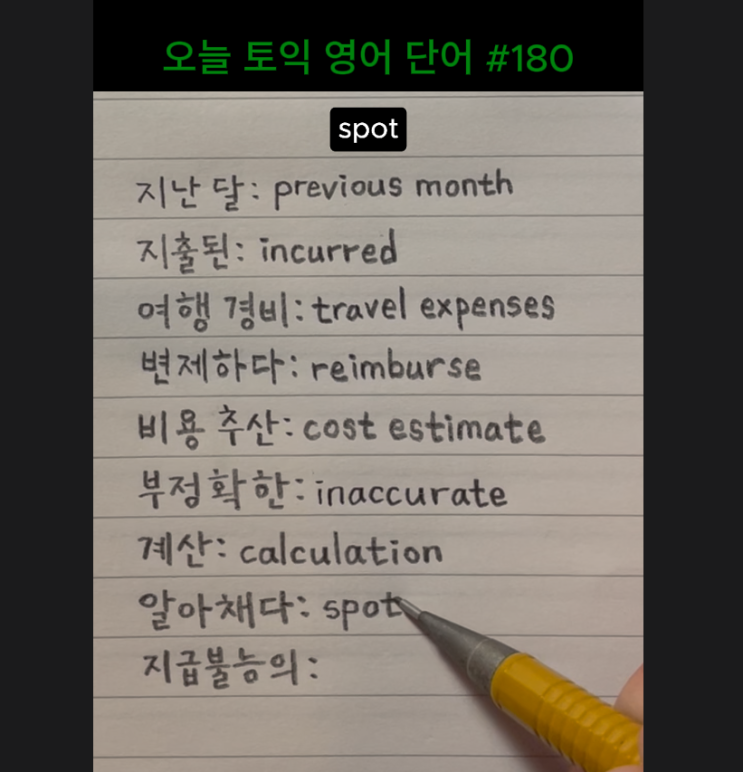 오늘 토익 영어 단어 #180
spot
지난 달: previous month
지출된: incurred
여행 경비: travel expenses
변제하다: reimburse
비용 추산: cost estimate
부정확한: inaccurate
계산: calculation
알아채다: spot
지급불능의: